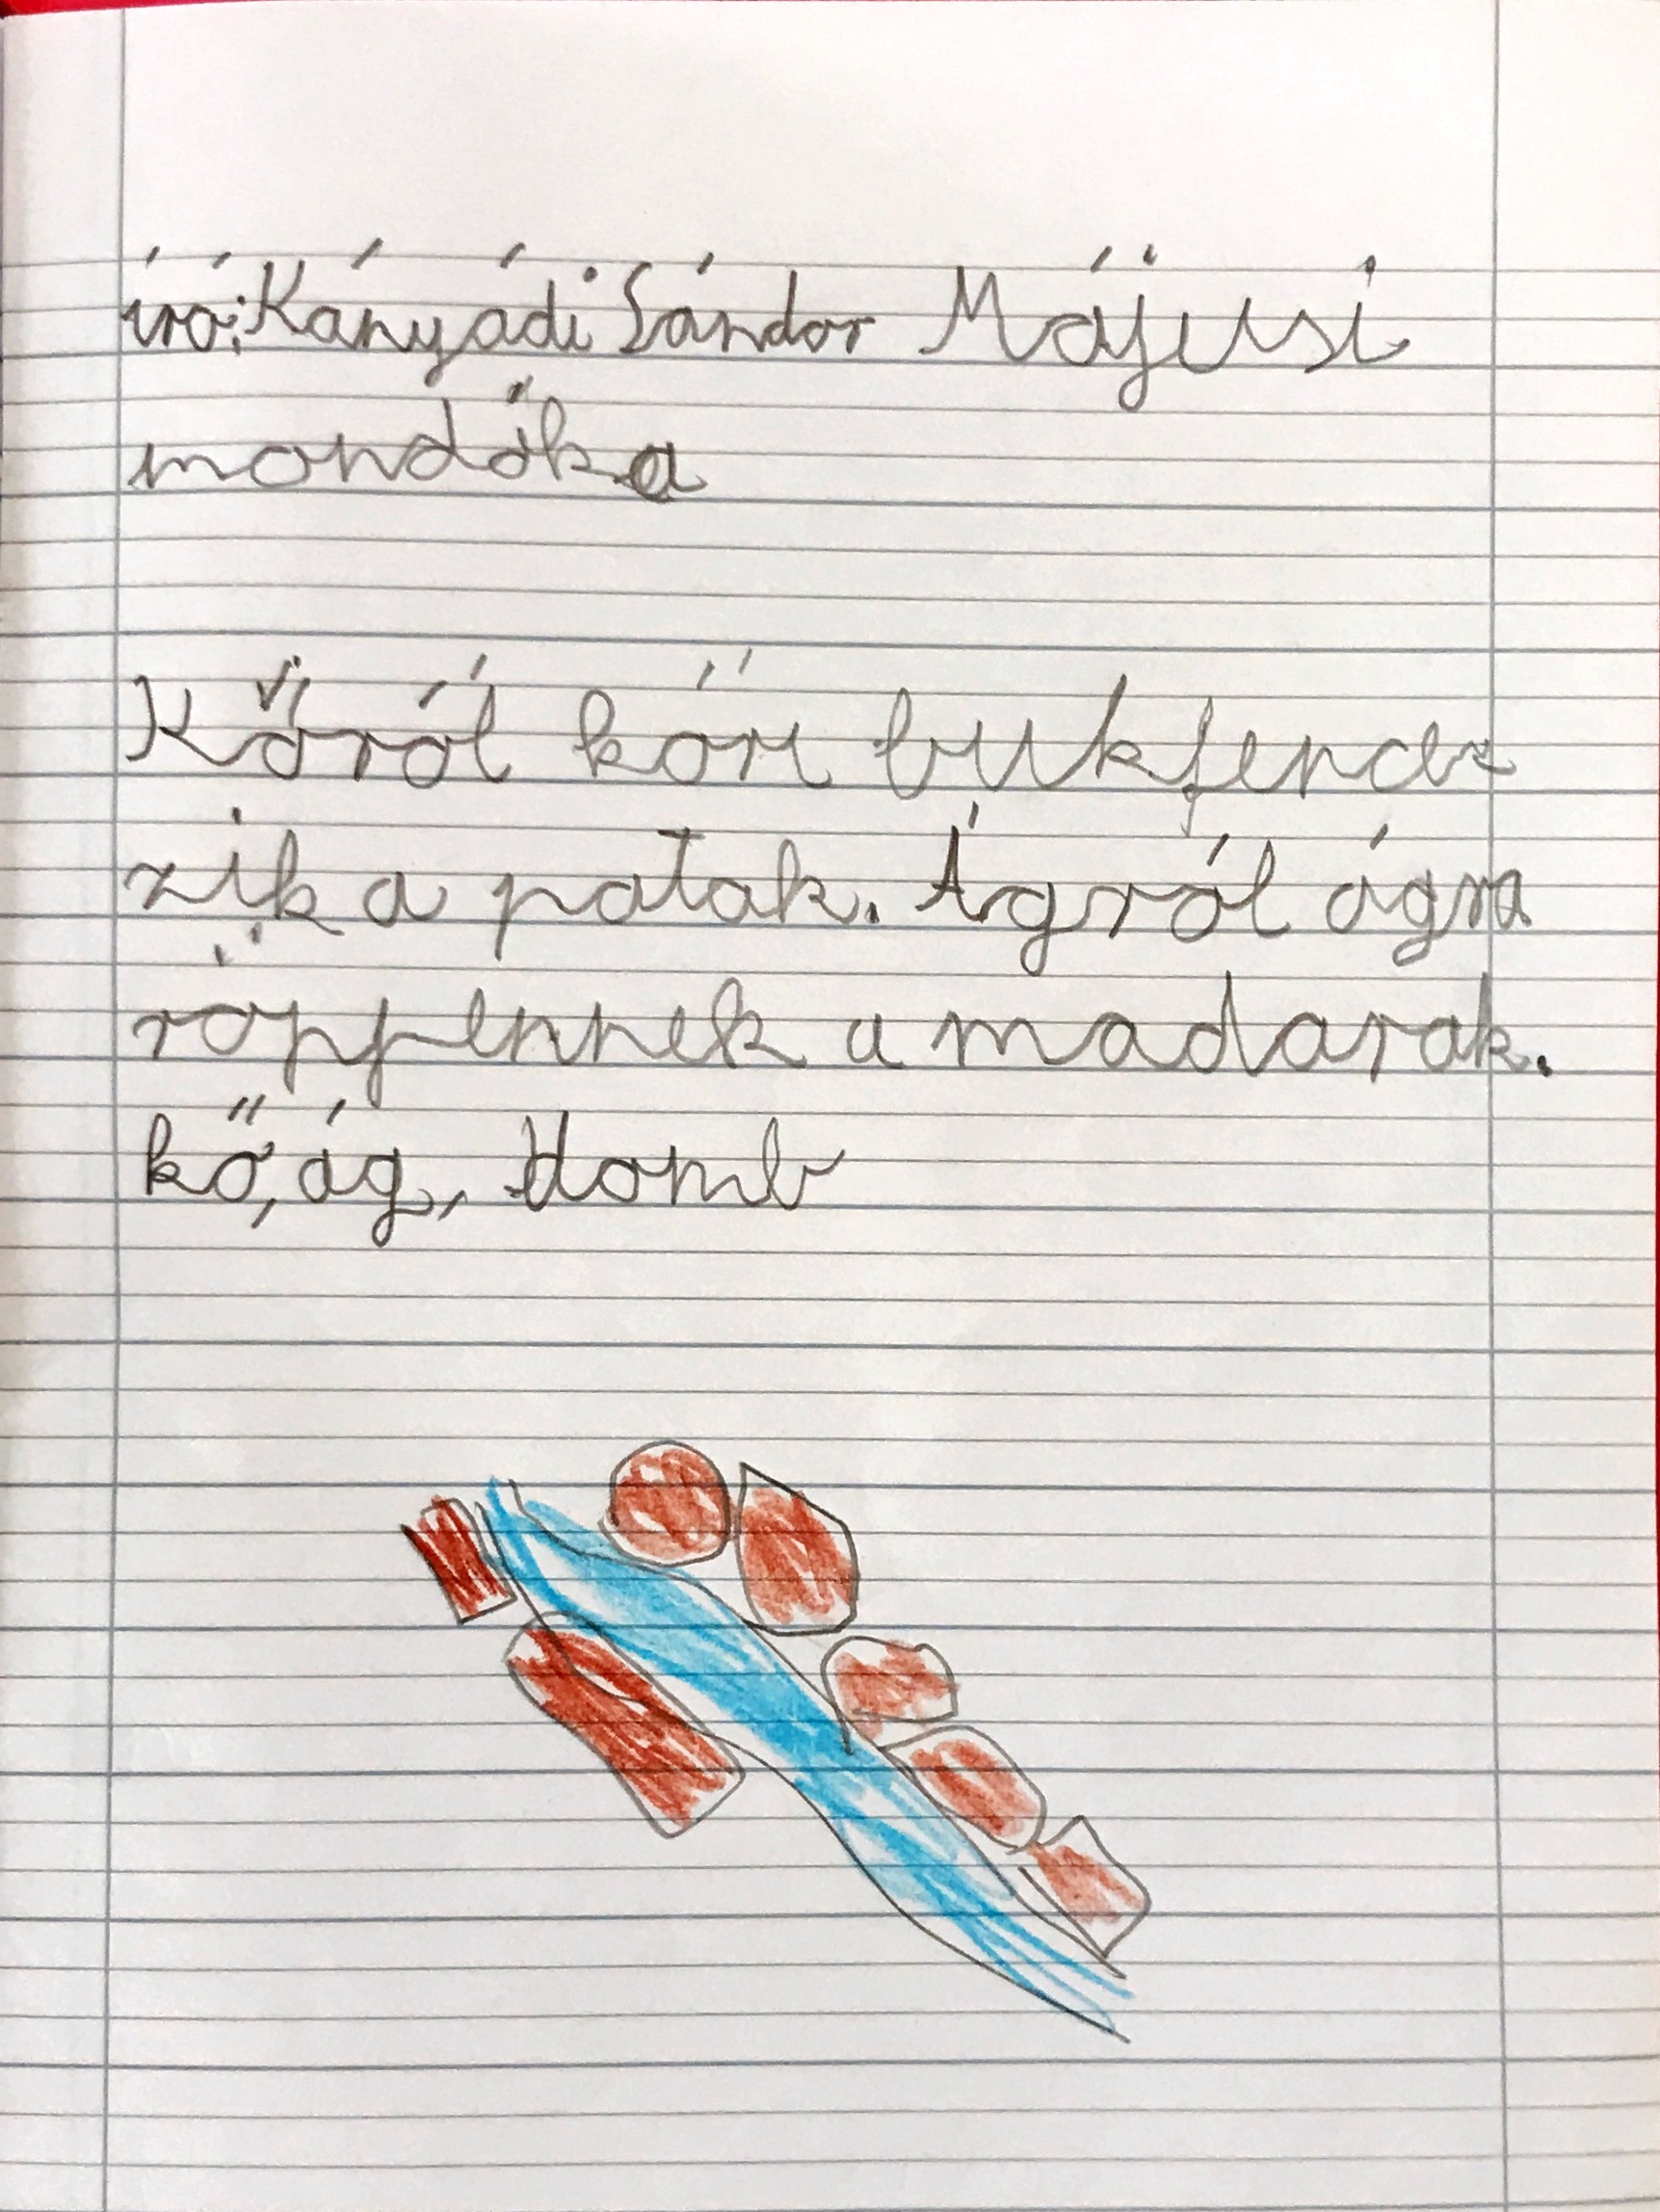 író: Kányádi Sándor Májusi
mondóka
Kőről kőre bukfence-
zik a patak. Ágról ágra
röppennek a madarak.
kő, ág, domb